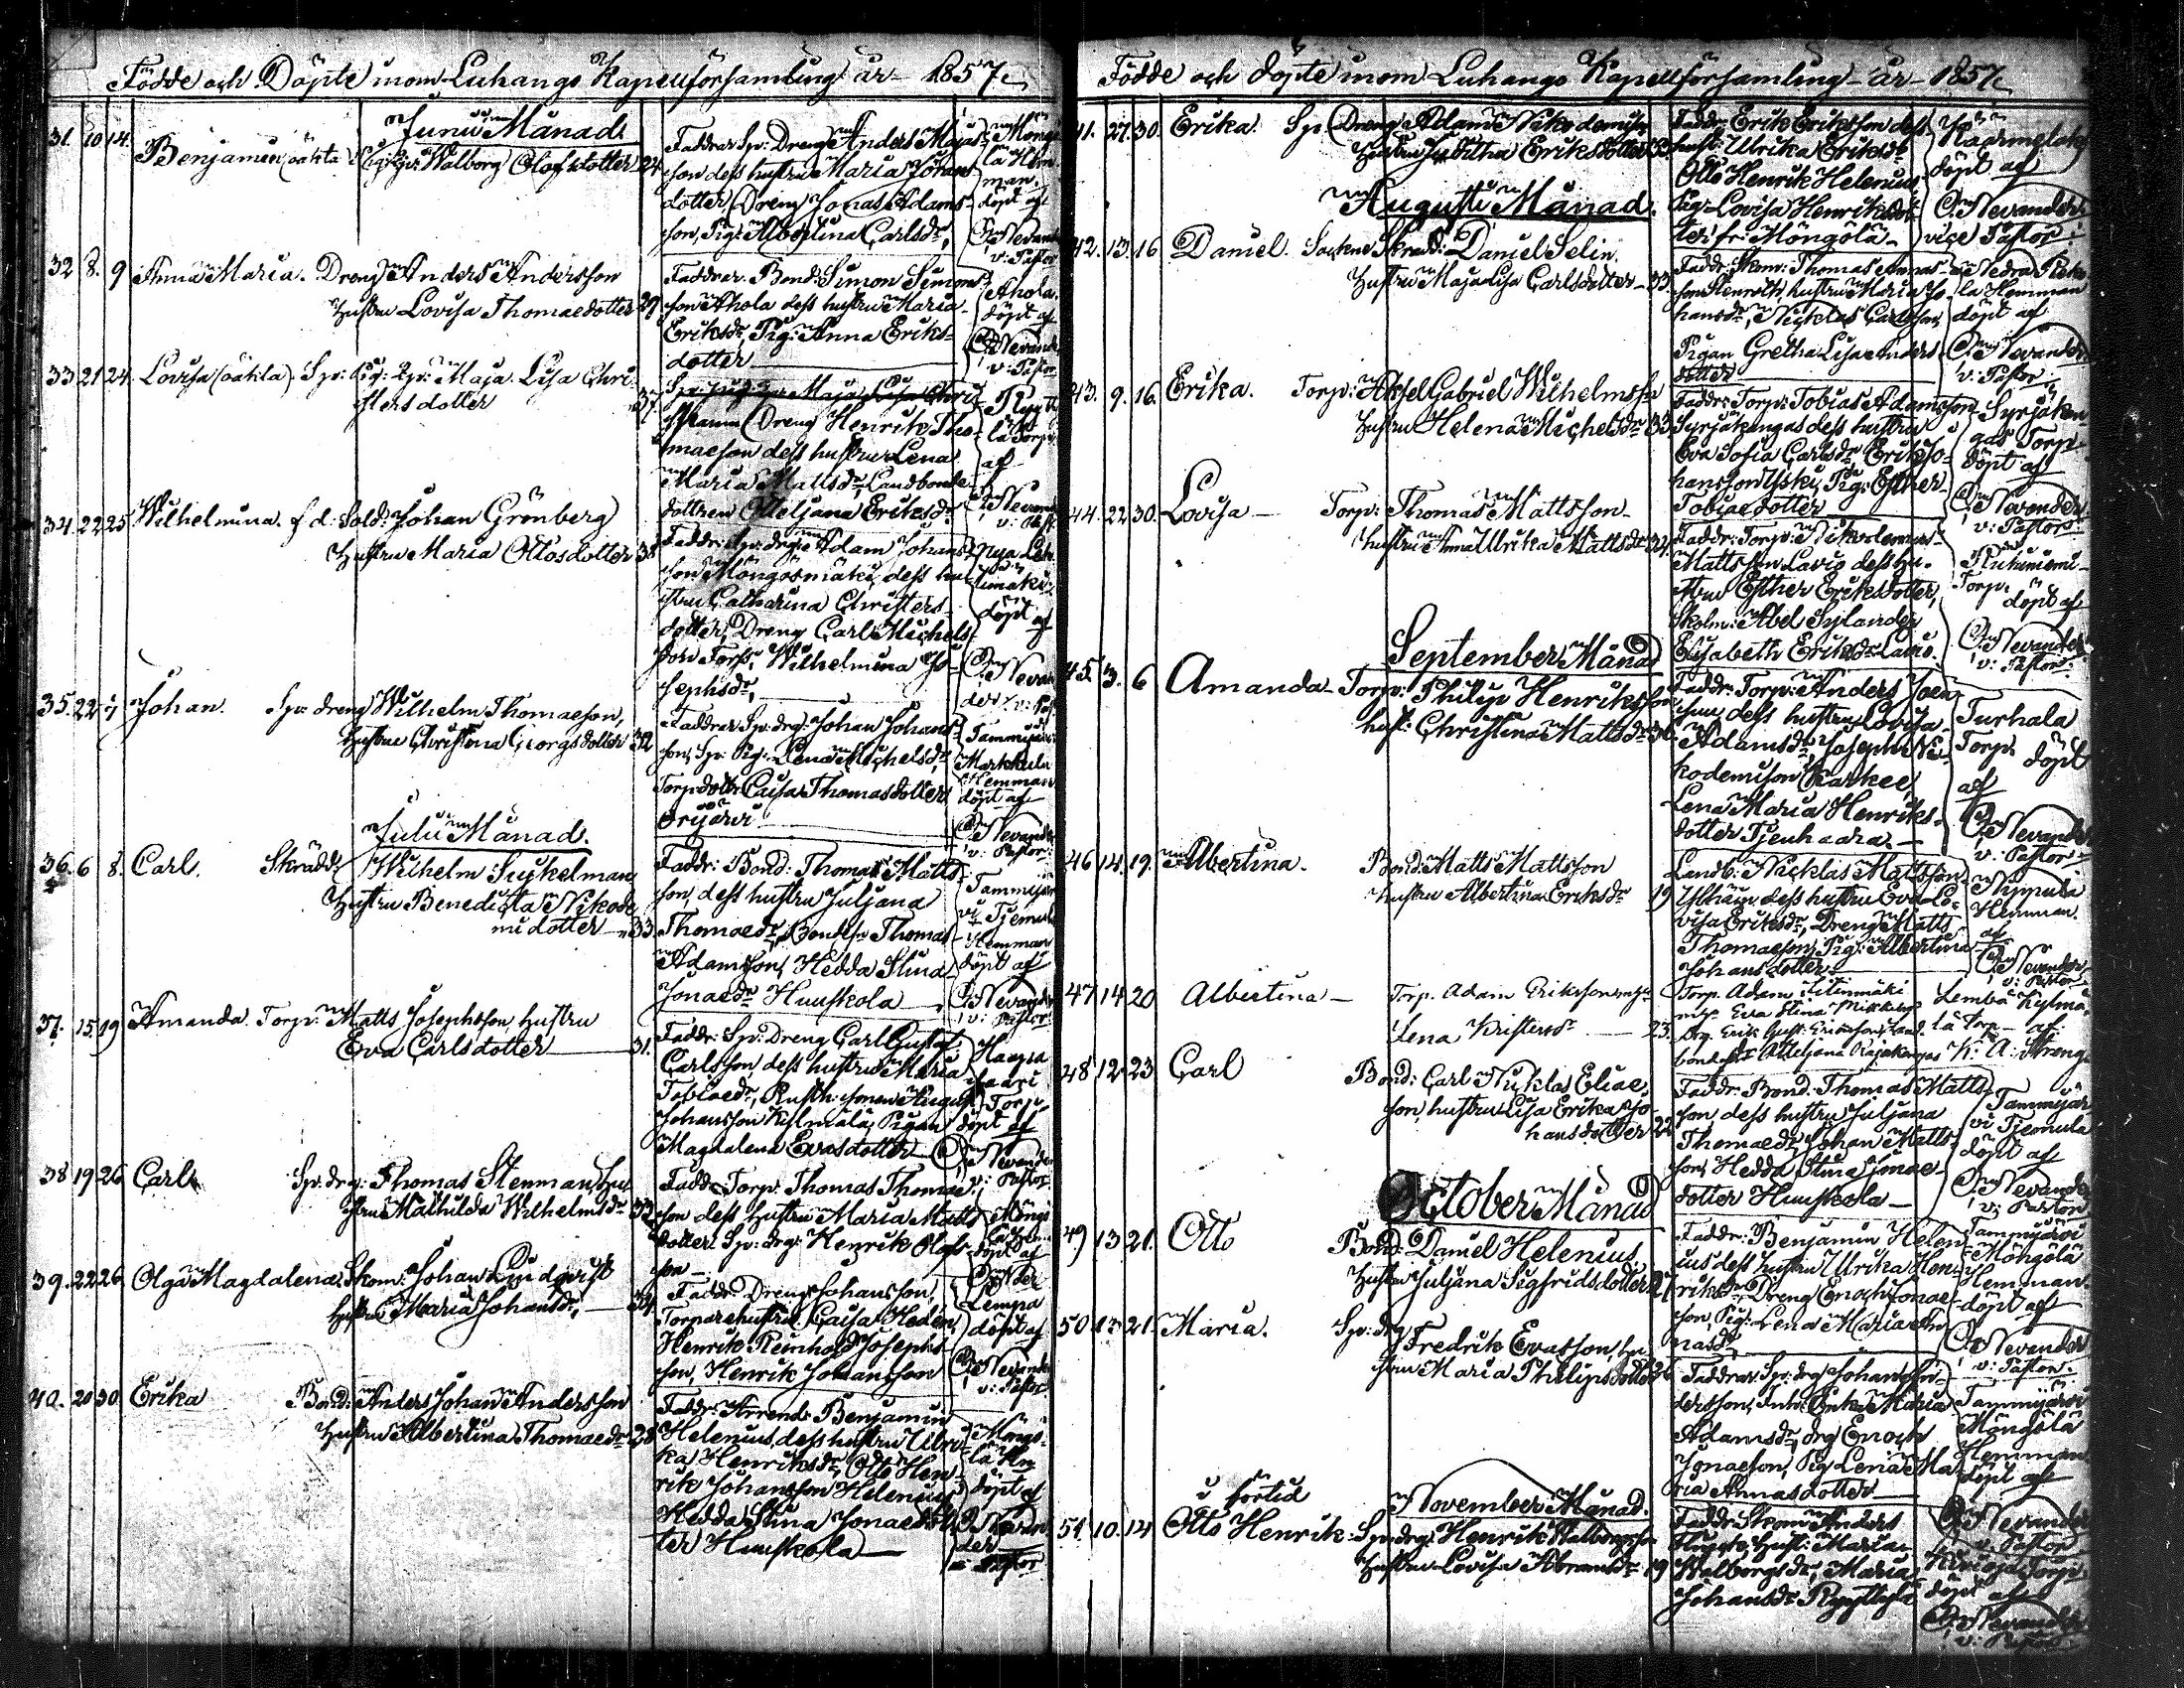 Födde och Döpte inom Luhango Kapellförsamling år 1857
Junii Månad
31. 10 14. Benjamin (oäkta) Walborg Olofsdotter 24
Faddrar Sp: Dreng Anders Majas-
son dess hustru Maria Johans
dotter, Dreng Jonas Adams-
son, Pig: Albertina Carlsdr,
döpt af
C. Nevander
v: Pastor
32 8. 9 Anna Maria. Dreng Anders Andersson
Hustru Lovisa Thomaedotter 29
Faddrar. Bond: Simon Simons-
son Ahola dess hustru Maria
Eriksdr Pig: Anna Eriks-
dotter
Ahola
döpt af
C. Nevander
v: Pastor
33 21 24. Lovisa (oäkta) Sp: Pig: Maja Lisa Chri-
stersdotter 37.
Dreng Henrik Tho-
maeson dess hustru Lena
Maria Mattsdr, Landbonde-
dottren Otteljana Eriksdr
Torp
af
C. Nevander
v: Past
34. 22 25 Wilhelmina. f.d: Sold: Johan Grönberg
Hustru Maria Ottosdotter
Faddr: Sp: drg: Adam Johans-
son Möngösmäki, dess hu-
stru Catharina Christers
dotter, Dreng Carl Michels-
son Wilhelmina Jo-
sephsdr,
Nya
döpt af
C. Nevan
der v: Past
35. 22 Johan. Sp: dreng Wilhelm Thomaeson,
Hustru Christina Georgsdotter 32
Faddrar Sp: drg: Johan Johans-
son, Sp: Pig: Lena Michelsdr,
Torpdottr Caisa Thomasdotter
Markkula
Hemman
döpt af
C. Nevander
v: Pastor
Julii Månad.
36. 6 8. Carl. Skrädd: Wilhelm
Hustru Benedicta Nikode
mi dotter 33
Faddr: Bond: Thomas Matts-
son, dess hustru Juljana
Thomaedr, Bondes: Thomas
Adamsson, Hedda Stina
Jonaedr Huuskola
Tammijär
vi Tjemula
Hemman
döpt af
C. Nevander
v: Pastor
37. 15 19 Amanda. Torp: Matts Josephsson, hustru
Eva Carlsdotter 31.
Faddr: Sp: Dreng Carl Gustaf
Carlsson, dess hustru Maria
Tobiaedr, Rusth: sonen August
Johansson Kylmälä, Pigan
Magdalena Evasdotter
Haapa
saari
Torp,
döpt af
C. Nevander
v: Pastor
38 19 26 Carl Sp: drg: Thomas Stenman, Hu
stru Mathilda Wilhelmsdr
Faddr Torp: Thomas Thomae-
son dess hustru Maria Matts
dotter Sp: drg: Henrik Olofs-
son
döpt af
39. 22 26 Olga Magdalena. Skom: Johan Lindqvist
Hustru Maria Johansdr, 34.
Faddr Dreng: Johansson,
Torpare hustru Caisa Hedén,
Henrik Reinhold Josephs-
son, Henrik Johansson
Lempa
döpt af
C. Nevander
v: Pastor
40. 20 30 Erika Bond: Anders Johan Andersson
Hustru Albertina Thomaedr 28
Faddr: Arrend: Benjamin
Helenius, dess hustru Ulri-
ka Henriksdr, Otto Hen-
rik Johansson Helenius,
Hedda Stina Jonaedot-
ter Huuskola
döpt af
C. Nevan
der
v: Pastor
Födde och döpte inom Luhango Kapellförsamling år 1857
41. 27. 30. Erika. Sp. Dreng Adam Nikodemusson
Hustru Erikdotter
Faddr: Erik Eriksson dess
hust: Ulrika Eriksdr
Otto Henrik Helenius
Pig: Lovisa Henriksdot
ter fr: Möngölä
döpt af
C. Nevander
vice Pastor
Augusti Månad.
42. 13. 16 Daniel. Sockne Skrädd: Daniel Selin.
Hustru Maja Lisa Carlsdotter 33.
Faddr: Skom: Thomas
Stenroth, hustru Maria Jo-
hansdr, Nicklas Carlsson,
Pigan Gretha Lisa Anders
dotter
Nedra
Hemman
döpt af
C. Nevander
v: Pastor
43. 9. 16. Erika. Torp: Aksel Gabriel Wilhelmsson
Hustru Helena Michelsdr 33
Faddr: Torp: Tobias Adamsson
Syrjäkangas dess hustru
Eva Sofia Carlsdr, Erik Jo-
hansson Ysky, Pig: Esther
Tobiaedotter
Syrjäkan
gas Torp
döpt af
C. Nevander
v: Pastor
44. 22 30. Lovisa Torp: Thomas Mattsson
Hustru Anna Ulrika Mattsdr 34.
Faddr: Torp: Nikodemus
Mattsson Lavio dess hu-
stru Esther Eriksdotter,
Skolm: Abel Sylander
Elisabeth Eriksdr Lavio.
Torp:
döpt af
C. Nevander
v: Pastor
September Månad
45. 3. 6 Amanda Torp: Philip Henriksson
hust: Christina Mattsdr
Faddr: Torp: Anders Joen-
son dess hustru Lovisa
Adamsdr, Joseph Ni-
kodemison Karkee,
Lena Maria Henriks-
dotter Tjenhaara
Turhala
Torp. döpt
af
C. Nevander
v: Pastor
46 14. 19. Albertina. Bond: Matts Mattsson
Hustru Albertina Eriksdr 19
Landb: Nicklas Mattsson
dess hustru Eva Lo-
visa Eriksdr, Dreng Matts
Thomaeson, Pig: Albertina
Johansdotter
Nippula
Hemman.
af
C. Nevander
v: Pastor
47 14 20 Albertina Torp. Adam Eriksson
Lena Kristersdr 23.
Torp. Adam
Eva Stina
Drg. Erik Gust: Eriksson, Land-
bondedr Otteljana Rajakangas
Kylmä-
lä Torp af
K: A: Streng
48 12 23 Carl Bond: Carl Nicklas Eliae
son, hustru Lisa Erika Jo
hansdotter 22
Faddr: Bond: Thomas Matts
son dess hustru Juljana
Thomaedr, Johan Matts
son, Hedda Stina Jonae-
dotter Huuskola
Tammijär
vi Tjemula
döpt af
C. Nevander
v: Pastor
October Månad
49 13 21. Otto Bond: Daniel Helenius,
Hustru Juljana Sigfridsdotter 27
Faddr: Benjamin Helen-
ius dess hustru Ulrika Hen-
riksdr, Dreng Enoch Jonae
son, Pig: Lena Maria An
nasdr,
Tammijärvi
Möngölä
Hemman.
döpt af
C. Nevander
v: Pastor.
50 13 21. Maria. Sp: drg Fredrik Evasson, hu
stru Maria Philipsdotter 26
Faddrar Sp: drg Johan An-
dersson, Enk: Maria
Adamsdr, drg Enoch
Jonaeson, Pig Lena Ma
ria Annasdotter
Tammijärvi
Möngölä
Hemman
döpt af
C. Nevander
v: Pastor
November Månad.
i förtid
51. 10. 14 Otto Henrik. Sp: drg: Henrik Walborgsson
Hustru Lovisa Abramsdr 19
Faddr: Skom: Anders
Hust: Maria
Walborgsdr, Maria
Johansdr
Torp
döpt af
C. Nevander
v: Pastor